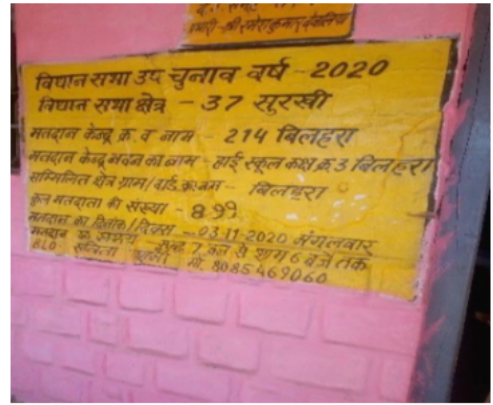 प्रभारी - श्री रमेश कुमार
विधान सभा उप चुनाव वर्ष - 2020
विधान सभा क्षेत्र - 37 सुरखी
मतदान केन्द्र क्र व नाम - 214 बिलहरा
मतदान केन्द्र भवन का नाम - हाई स्कूल कक्ष क्र 3 बिलहरा
सम्मिलित क्षेत्र ग्राम/वार्ड क्र - बिलहरा
कुल मतदाता की संख्या - 899
मतदान का दिनांक/दिवस - 03-11-2020 मंगलवार
मतदान का समय सुबह 7 बजे से शाम 6 बजे तक
BLO मो. 8085469060